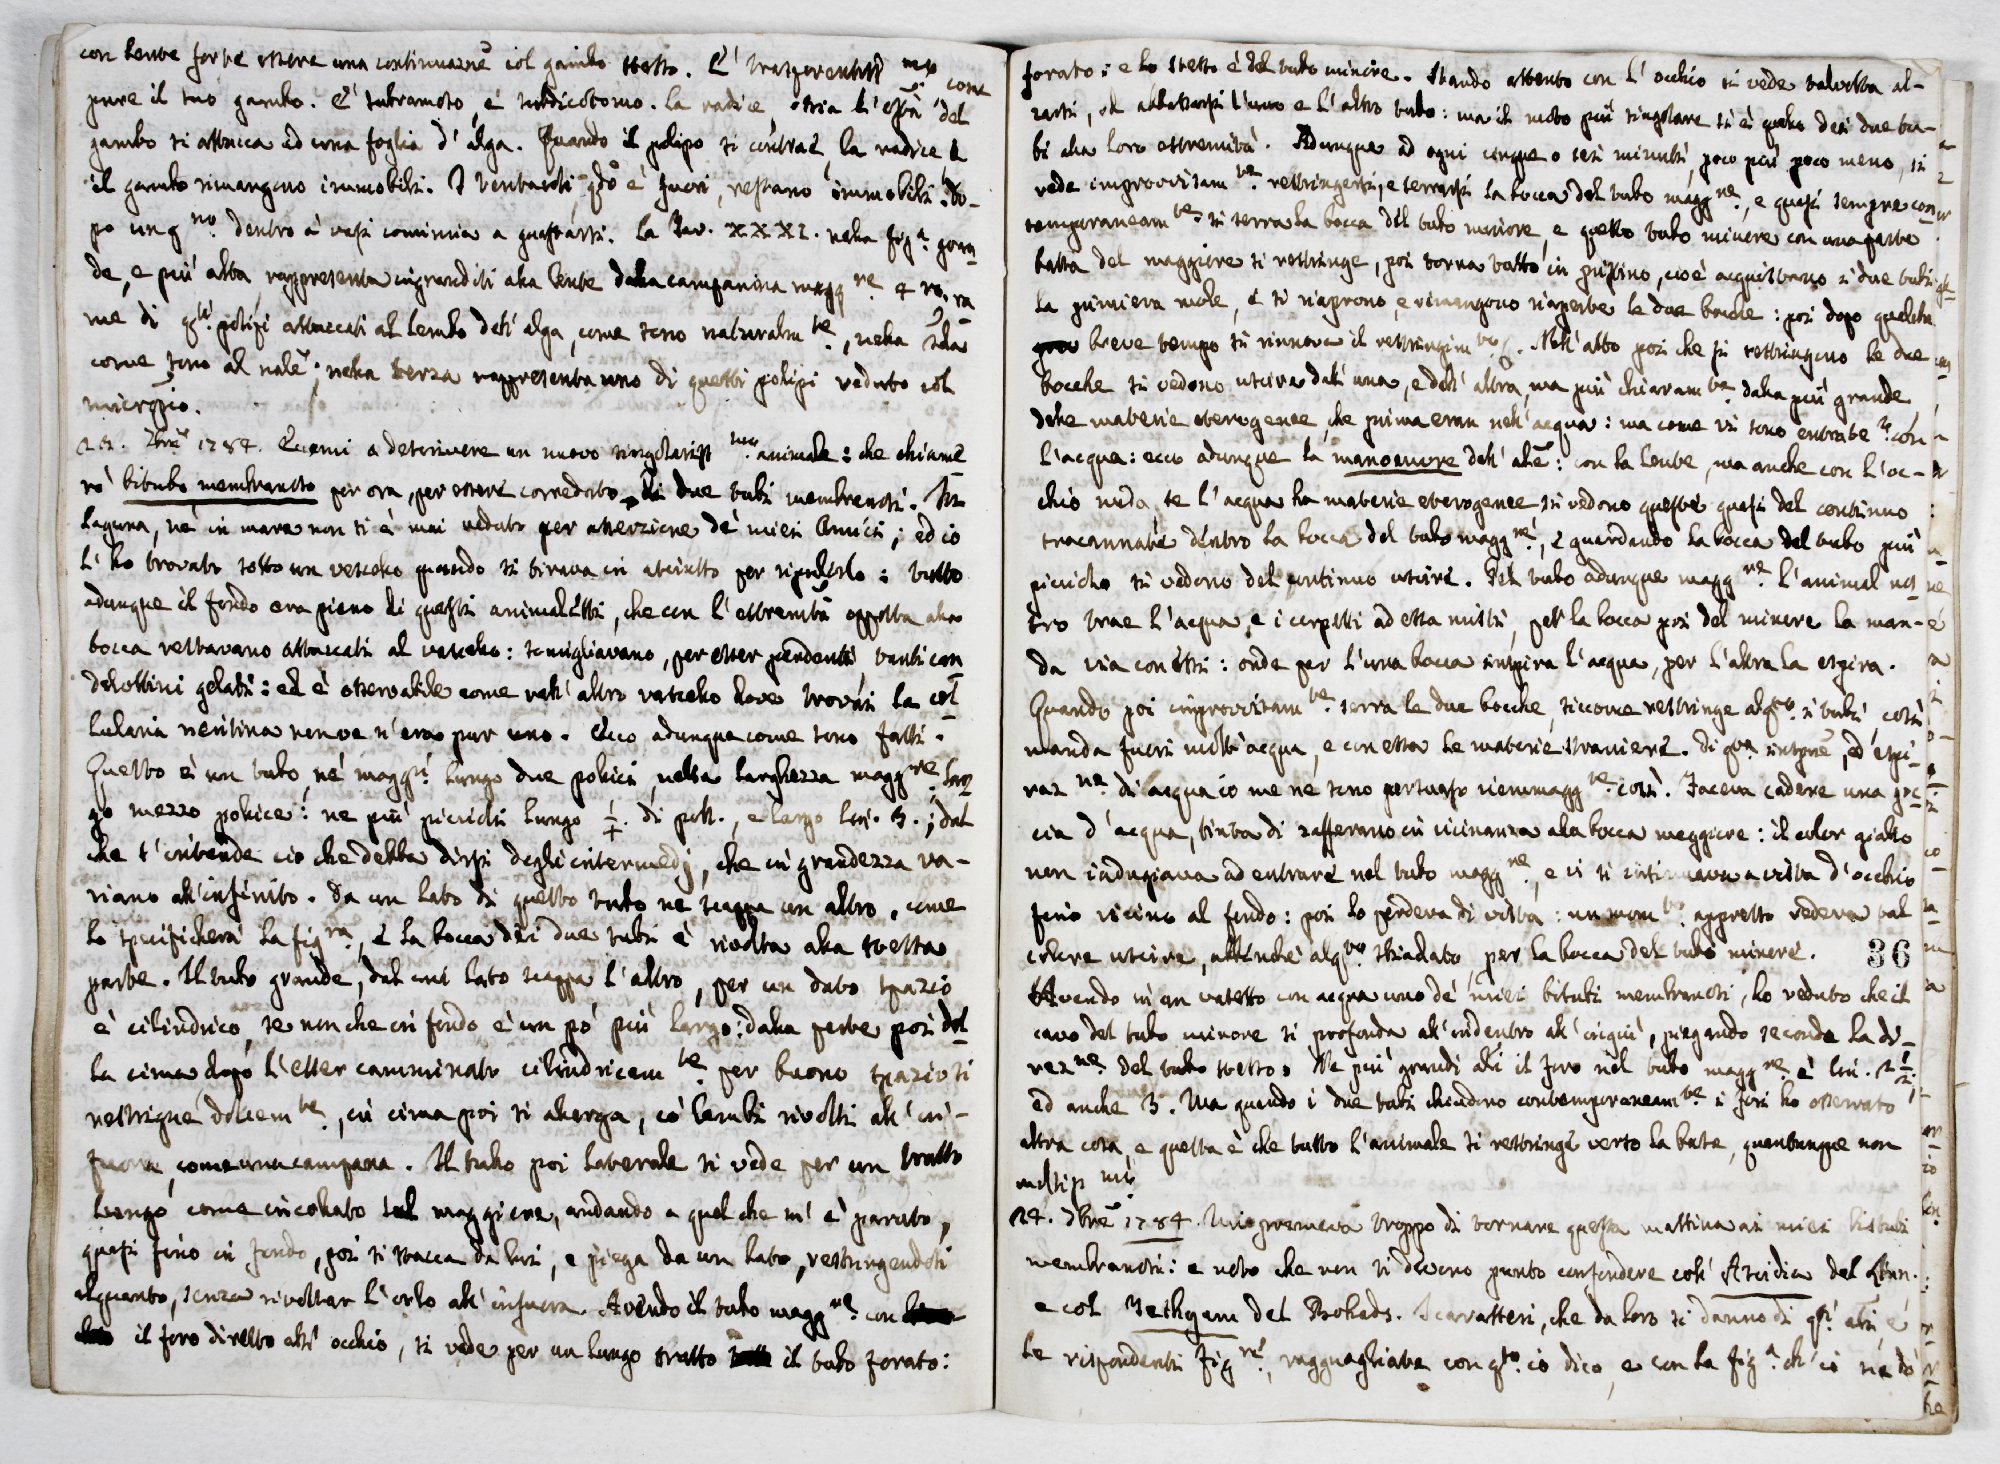 con lente forse essere una continuazne col gambo stesso. È trasparentiss.mo come
pure il suo gambo. È subramoso, e subdicotomo. La radice, ossia l' estrà del
gambo si attacca ad una foglia d' alga. Quando il polipo si contrae, la radice e
il gambo rimangono immobili. I tentacoli qdo è fuori, restano immobili. Do-
po un g.no dentro a' vasi comincia a guastarsi. La Tav. XXXI. nella fig.a gran
de, e più alta rappresenta ingranditi alla lente dalla campanina magg.re 4 ra
me di q.ti polipi attaccati al lembo dell' alga, come sono naturalm.te, nella 2da
come sono al nale; nella terza rappresenta uno di questi polipi veduto col
micropio.
21. 7bre 1784. Eccomi a descrivere un nuovo singolariss.mo animale: che chiame
rò bitubo membranoso per ora, per essere corredato di due tubi membranosi. In
laguna, nè in mare non si è mai veduto per asserzione de' miei Amici; ed io
l' ho trovato sotto un vascello quando si tirava in asciutto per ripulirlo: tutto
adunque il fondo era pieno di questi animaletti, che con l' estremità opposta alla
bocca restavano attaccati al vascello: somigliavano, per esser pendenti tanti can
delottini gelati: ed è osservabile come nell' altro vascello dove trovasi la cel
lularia neritina non ve n' era pur uno. Ecco adunque come sono fatti.
Questo è un tubo, ne' maggri lungo due pollici, nella larghezza magg.re lar
go mezzo pollice: ne' più piccioli lungo di poll., e largo lin. 3.; dal
che s' intende ciò che debba dirsi degli intermedj, che in grandezza va-
riano all' infinito. Da un lato di questo tubo ne scappa un altro, come
lo specificherà la fig.ra, e la bocca dei due tubi è rivolta alla stessa
parte. Il tubo grande, dal cui lato scappa l' altro, per un dato spazio
è cilindrico, se non che in fondo è un pò più largo: dalla parte poi del
la cima dopo l' esser camminato cilindricam.te per buono spazio si
restrigne dolcem.te, in cima poi si allarga, co' lembi rivolti all' in-
fuora, come una campana. Il tubo poi laterale si vede per un tratto
lungo come incollato sul maggiore, andando a quel che m' è paruto,
quasi fino in fondo, poi si stacca da lui, e piega da un lato, restringendosi
alquanto, senza rivoltar l' orlo all' infuora. Avendo il tubo magg.re con
il foro diretto all' occhio, si vede per un lungo tratto il tubo forato:
forato: e lo stesso è del tubo minore. Stando attento con l' occhio si vede talvolta al-
zarsi, ed abbassarsi l' uno e l' altro tubo: ma il moto più singolare si è quello dei due tu-
bi alla loro estremità. Adunque ad ogni cinque o sei minuti, poco più poco meno, si
vede improvvisam.te restringersi, e serrarsi la bocca del tubo magg.re, e quasi sempre con
temporaneam.te si serra la bocca del tubo minore, e questo tubo minore con una parte
bassa del maggiore si restringe, poi torna tosto in pristino, cioè acquistano i due tubi
la primiera mole, e si riaprono, e rimangono riaperte le due bocche: poi dopo qualche
breve tempo si rinnova il restringim.to. Nell' atto poi che si restringono le due
bocche si vedono uscire dall' una, e dall' altra, ma più chiaram.te dalla più grande
delle materie eterogenee, che prima eran nell' acqua: ma come vi sono entrate? con
l' acqua: ecco adunque la manouvre dell' ale: con la lente, ma anche con l' oc-
chio nudo, se l' acqua ha materie eterogenee si vedono queste quasi del continuo
tracannate dentro la bocca del tubo magg.re, e guardando la bocca del tubo più
picciolo si vedono del continuo uscire. Pel tubo adunque magg.re l' animal nos
tro trae l' acqua, e i corpetti ad essa misti, per la bocca poi del minore la man-
da via con essi: onde per l' una bocca inspira l' acqua, per l' altra la espira.
Quando poi improvvisam.te serra le due bocche, siccome restringe alq.to i tubi così
manda fuori molt' acqua, e con essa le materie straniere. Di q.ta inspne, ed espi-
raz.ne di acqua io me ne sono persuaso viemmagg.te così. Faceva cadere una goc
cia d' acqua, tinta di zafferano in vicinanza alla bocca maggiore: il color giallo
non indugiava ad entrare nel tubo magg.re, e vi si continuava a vista d' occhio
fino vicino al fondo: poi lo perdeva di vista: un mom.to appresso vedeva tal
colore uscire, abbenchè alq.to sbiadato per la bocca del tubo minore.
36
Avendo in un vasetto con acqua uno de' miei bitubi membranosi, ho veduto che il
cavo del tubo minore si profonda all' indentro all' ingiù, piegando secondo la di-
rez.ne del tubo stesso. Ne' più grandi ali il foro nel tubo magg.re è lin. 2 1/2;
ed anche 3. Ma quando i due tubi chiudono contemporaneam.te i fori ho osservato
altra cosa, e questa è che tutto l' animale si restringe verso la base, quantunque non
moltiss.mo
24. 7bre 1784. Mi premeva troppo di tornare questa mattina ai miei bitubi
membranosi: e noto che non si devono punto confondere coll' Ascidia del Linn.
e col Tethyum del Bohads. I caratteri, che da loro si danno di q.ti ali, e
le rispondenti fig.re, ragguagliate con q.to io dico, e con la fig.a ch' io ne dò